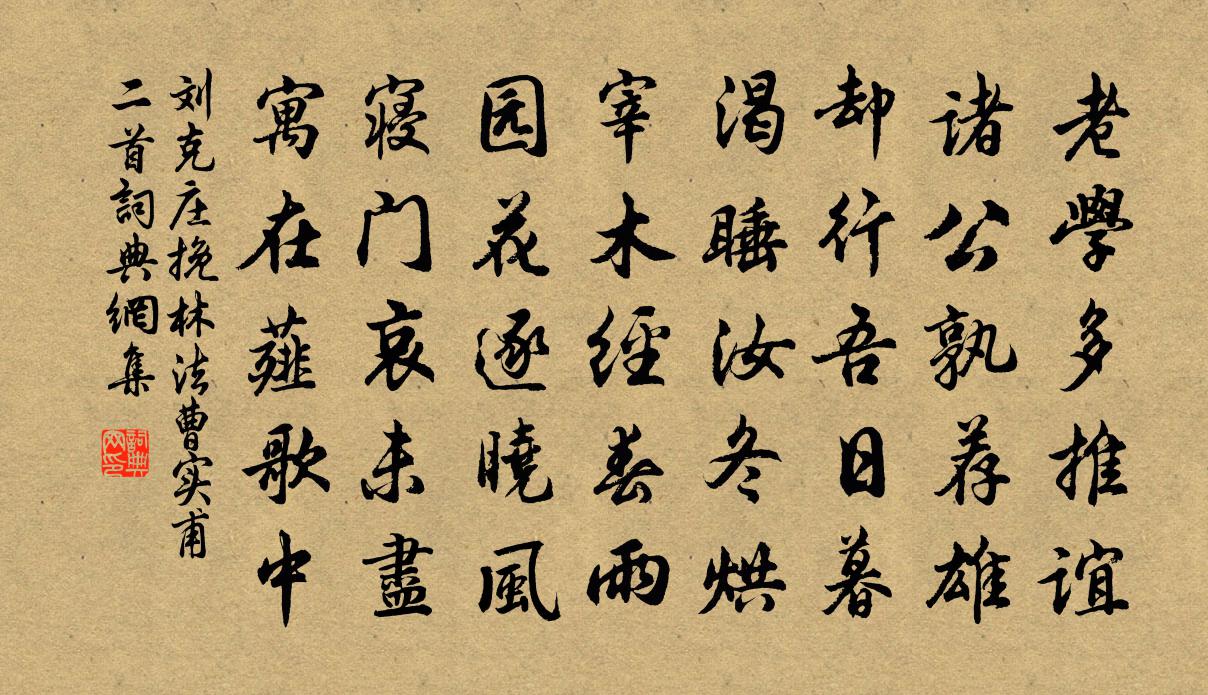 老學多推谊
诸公孰荐雄
却行吾日暮
渴睡汝冬烘
宰木經春雨
园花逐曉風
寝门哀未盡
寓在薤歌中
刘克庄挽林法曹实甫
二首詞典網集
詞典网印